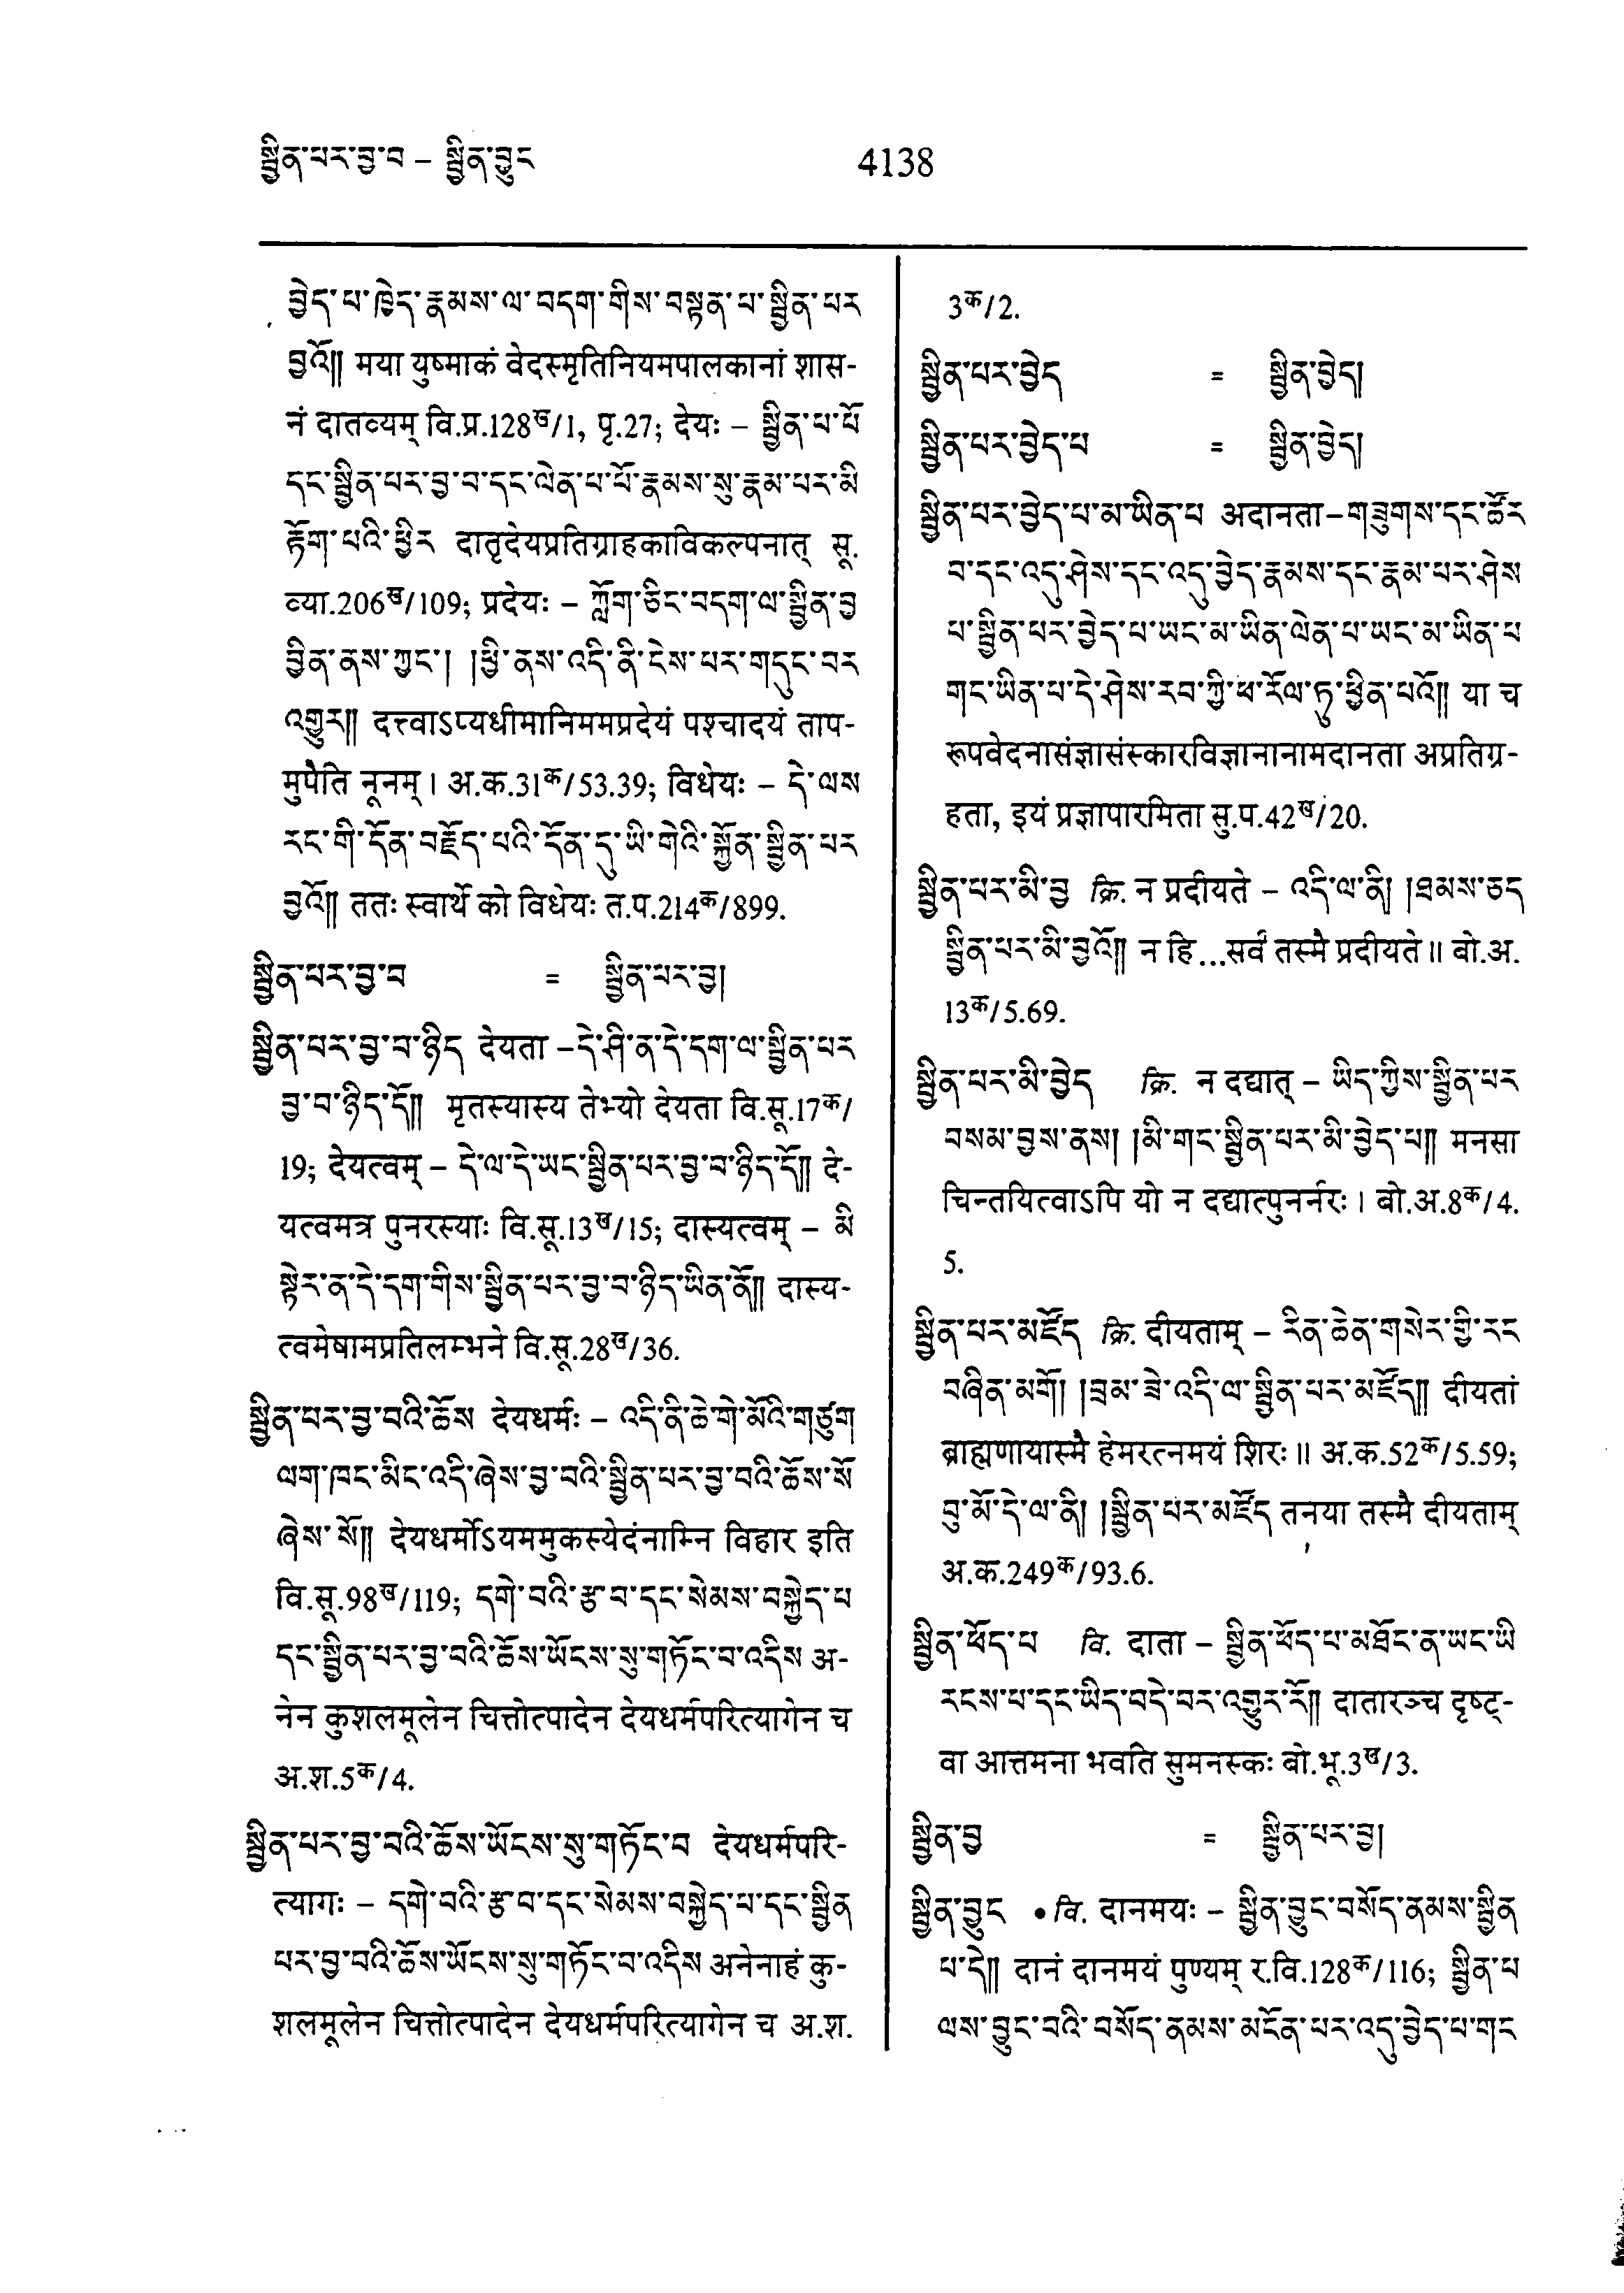 སྦྱིན་པར་བྱ་བ – སྦྱིན་བྱུང
4138
བྱེད་པ་ཁྱེད་རྣམས་ལ་བདག་གིས་བསྟན་པ་སྦྱིན་པར
བྱའོ༎ मया युष्माकं वेदस्मृतिनियमपालकानां शास-
नं दातव्यम् वि.प्र.128ख/1, पृ.27; देयः – སྦྱིན་པ་པོ
དང་སྦྱིན་པར་བྱ་བ་དང་ལེན་པ་པོ་རྣམས་སུ་རྣམ་པར་མི
རྟོག་པའི་ཕྱིར दातृदेयप्रतिग्राहकाविकल्पनात् सू.
व्या.206ख/109; प्रदेयः – ཀློག་ཅིང་བདག་ལ་སྦྱིན་བྱ
བྱིན་ནས་ཀྱང་། །ཕྱི་ནས་འདི་ནི་ངེས་པར་གདུང་བར
འགྱུར༎ दत्त्वाऽप्यधीमानिममप्रदेयं पश्चादयं ताप-
मुपैति नूनम् । अ.क.31क/53.39; विधेयः – དེ་ལས
རང་གི་དོན་བརྗོད་པའི་དོན་དུ་ཡི་གེའི་སྐྱོན་སྦྱིན་པར
བྱའོ༎ ततः स्वार्थे को विधेयः त.प.214क/899.
སྦྱིན་པར་བྱ་བ = སྦྱིན་པར་བྱ།
སྦྱིན་པར་བྱ་བ་ཉིད देयता –དེ་ཤི་ན་དེ་དག་ལ་སྦྱིན་པར
བྱ་བ་ཉིད་དོ༎ मृतस्यास्य तेभ्यो देयता वि.सू.17क/
19; देयत्वम् – དེ་ལ་དེ་ཡང་སྦྱིན་པར་བྱ་བ་ཉིད་དོ༎ दे-
यत्वमत्र पुनरस्याः वि.सू.13ख/15; दास्यत्वम् – མི
སྟེར་ན་དེ་དག་གིས་སྦྱིན་པར་བྱ་བ་ཉིད་ཡིན་ནོ༎ दास्य-
त्वमेषामप्रतिलम्भने वि.सू.28ख/36.
སྦྱིན་པར་བྱ་བའི་ཆོས देयधर्मः – འདི་ནི་ཆེ་གེ་མོའི་གཙུག
ལག་ཁང་མིང་འདི་ཞེས་བྱ་བའི་སྦྱིན་པར་བྱ་བའི་ཆོས་སོ
ཞེས་སོ༎ देयधर्मोऽयममुकस्येदंनाम्नि विहार इति
वि.सू.98ख/119; དགེ་བའི་རྩ་བ་དང་སེམས་བསྐྱེད་པ
དང་སྦྱིན་པར་བྱ་བའི་ཆོས་ཡོངས་སུ་གཏོང་བ་འདིས अ-
नेन कुशलमूलेन चित्तोत्पादेन देयधर्मपरित्यागेन च
अ.श.5क/4.
སྦྱིན་པར་བྱ་བའི་ཆོས་ཡོངས་སུ་གཏོང་བ देयधर्मपरि-
त्यागः – དགེ་བའི་རྩ་བ་དང་སེམས་བསྐྱེད་པ་དང་སྦྱིན
པར་བྱ་བའི་ཆོས་ཡོངས་སུ་གཏོང་བ་འདིས अनेनाहं कु-
शलमूलेन चित्तोत्पादेन देयधर्मपरित्यागेन च अ.श.
3क/2.
སྦྱིན་པར་བྱེད = སྦྱིན་བྱེད།
སྦྱིན་པར་བྱེད་པ = སྦྱིན་བྱེད།
སྦྱིན་པར་བྱེད་པ་མ་ཡིན་པ अदानता–གཟུགས་དང་ཚོར
བ་དང་འདུ་ཤེས་དང་འདུ་བྱེད་རྣམས་དང་རྣམ་པར་ཤེས
པ་སྦྱིན་པར་བྱེད་པ་ཡང་མ་ཡིན་ལེན་པ་ཡང་མ་ཡིན་པ
གང་ཡིན་པ་དེ་ཤེས་རབ་ཀྱི་ཕ་རོལ་ཏུ་ཕྱིན་པའོ༎ या च
रूपवेदनासंज्ञासंस्कारविज्ञानानामदानता अप्रतिग्र-
हता, इयं प्रज्ञापारमिता सु.प.42ख/20.
སྦྱིན་པར་མི་བྱ क्रि. न प्रदीयते – འདི་ལ་ནི། །ཐམས་ཅད
སྦྱིན་པར་མི་བྱའོ༎ न हि...सर्वं तस्मै प्रदीयते ॥ बो.अ.
13क/5.69.
སྦྱིན་པར་མི་བྱེད क्रि. न दद्यात् – ཡིད་ཀྱིས་སྦྱིན་པར
བསམ་བྱས་ནས། །མི་གང་སྦྱིན་པར་མི་བྱེད་པ༎ मनसा
चिन्तयित्वाऽपि यो न दद्यात्पुनर्नरः । बो.अ.8क/4.
5.
སྦྱིན་པར་མཛོད क्रि. दीयताम् – རིན་ཆེན་གསེར་གྱི་རང
བཞིན་མགོ། །བྲམ་ཟེ་འདི་ལ་སྦྱིན་པར་མཛོད༎ दीयतां
ब्राह्मणायास्मै हेमरत्नमयं शिरः ॥ अ.क.52क/5.59;
བུ་མོ་དེ་ལ་ནི། །སྦྱིན་པར་མཛོད तनया तस्मै दीयताम्
अ.क.249क/93.6.
སྦྱིན་ཕོད་པ वि. दाता – སྦྱིན་ཕོད་པ་མཐོང་ན་ཡང་ཡི
རངས་པ་དང་ཡིད་བདེ་བར་འགྱུར་རོ༎ दातारञ्च दृष्ट्-
वा आत्तमना भवति सुमनस्कः बो.भू.3ख/3.
སྦྱིན་བྱ = སྦྱིན་པར་བྱ།
སྦྱིན་བྱུང •वि. दानमयः – སྦྱིན་བྱུང་བསོད་ནམས་སྦྱིན
པ་དེ༎ दानं दानमयं पुण्यम् र.वि.128क/116; སྦྱིན་པ
ལས་བྱུང་བའི་བསོད་ནམས་མངོན་པར་འདུ་བྱེད་པ་གང